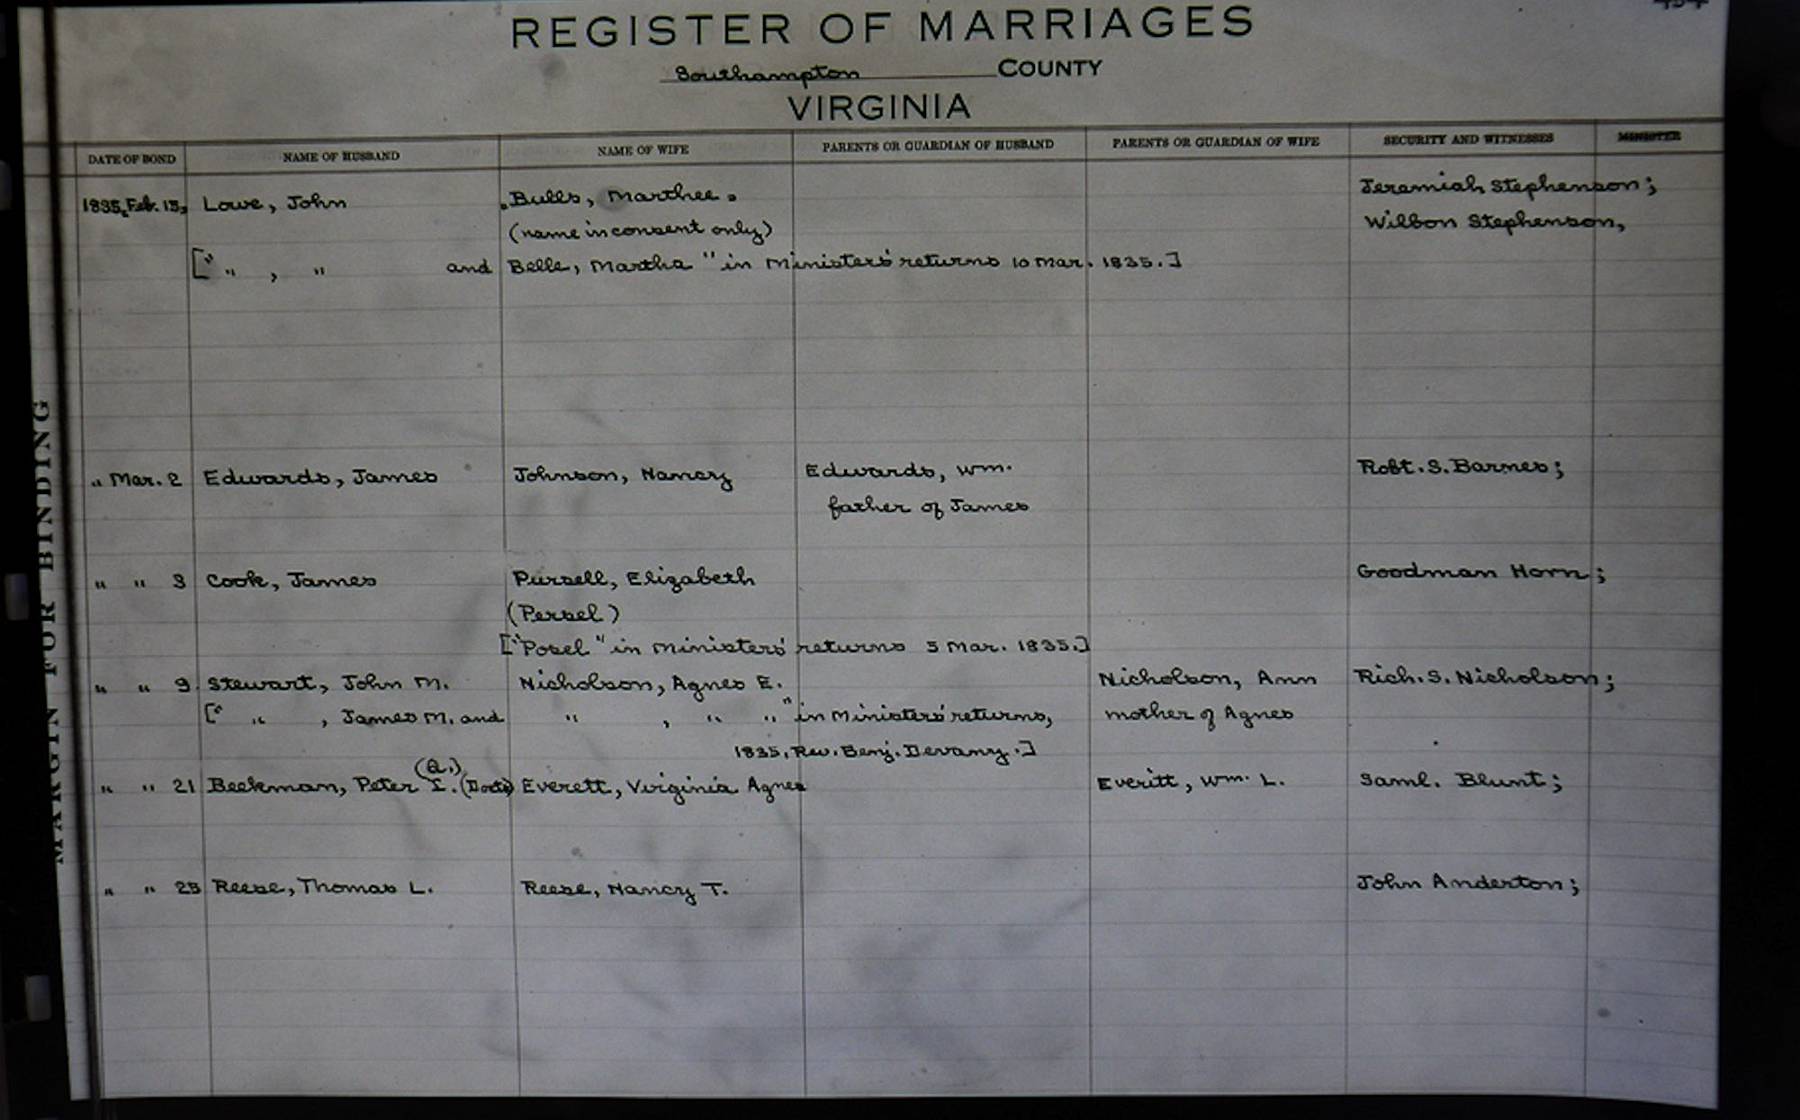 REGISTER OF MARRIAGES
Southampton COUNTY
VIRGINIA
DATE OF BOND NAME OF HUSBAND NAME OF WIFE PARENTS OR GUARDIAN OF HUSBAND PARENTS OR GUARDIAN OF WIFE SECURITY AND WITNESSES MINISTER
1835, Feb. 13, Lowe, John Bulls, Marthee. Jeremiah Stephenson;
(name in consent only) Wilbon Stephenson,
[" " , " and Belle, Martha " in Ministers' returns 10 Mar. 1835.]
" Mar. 2 Edwards, James Johnson, Nancy Edwards, Wm. Robt. S. Barnes;
father of James
" " 3 Cook, James Pursell, Elizabeth Goodman Horn;
(Persel)
["Posel" in Ministers' returns 5 Mar. 1835.]
" " 9 Stewart, John M. Nicholson, Agnes E. Nicholson, Ann Rich. S. Nicholson;
[" " , James M. and " , " " " in Ministers' returns, mother of Agnes
1835, Rev. Benj. Devany.]
(Q.)
" " 21 Beekman, Peter I. (Doct) Everett, Virginia Agnes Everitt, Wm. L. Saml. Blunt;
" " 25 Reese, Thomas L. Reese, Nancy T. John Anderton;
MARGIN FOR BINDING